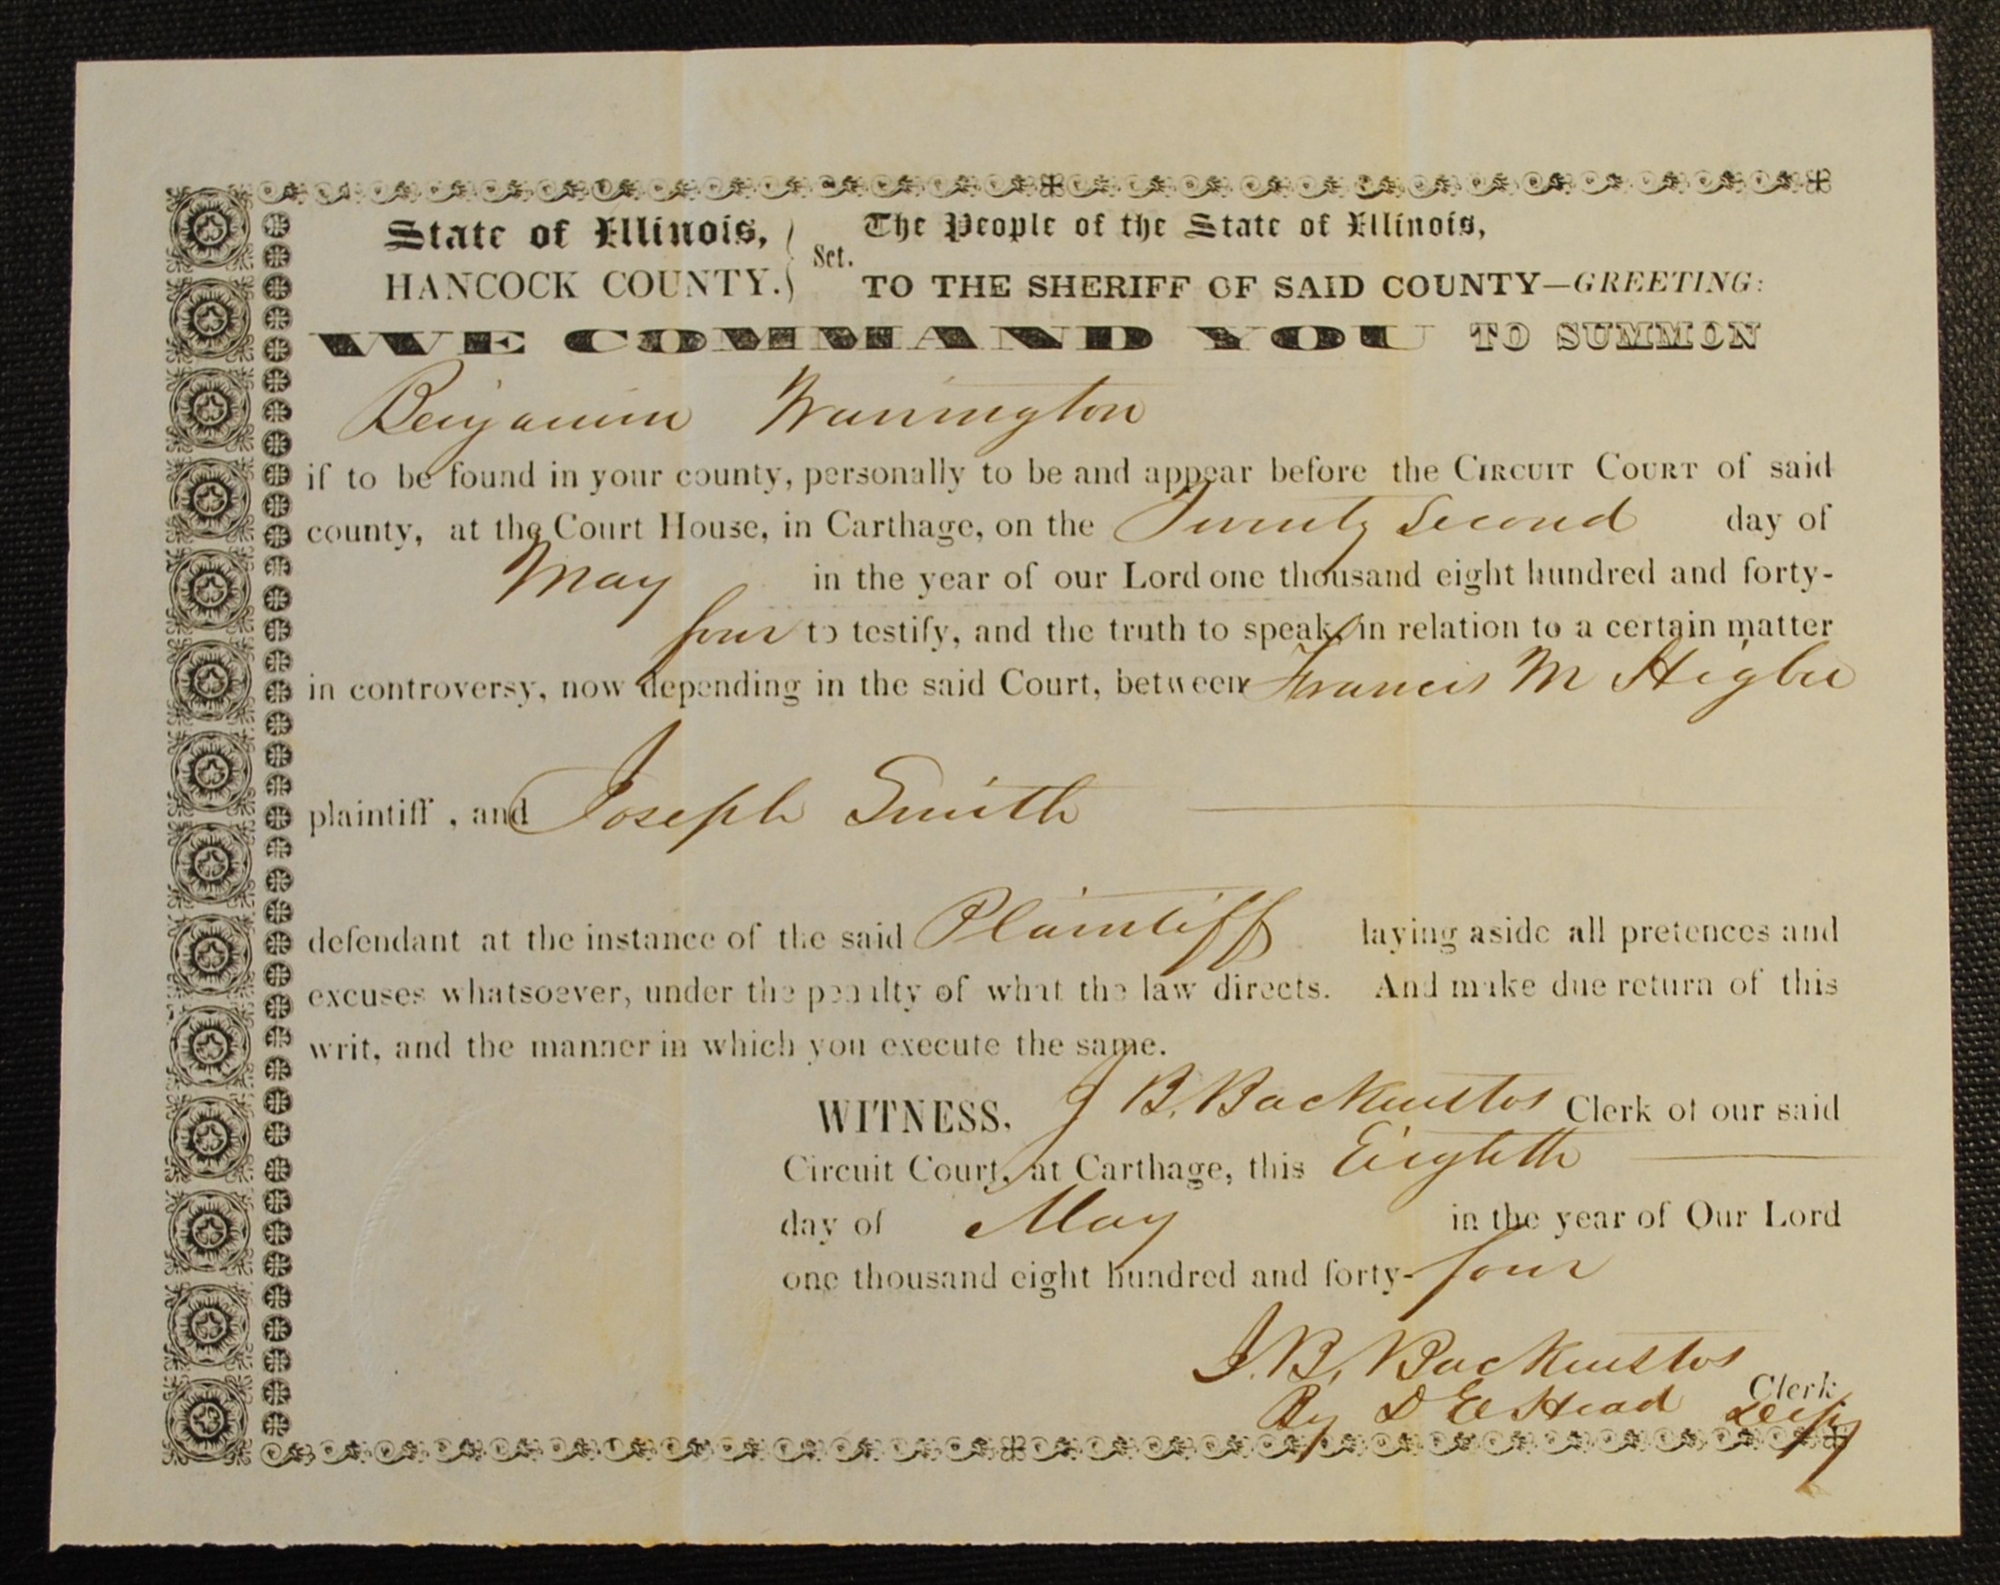 State of Illinois,
HANCOCK COUNTY.
Sct.
The People of the State of Illinois,
TO THE SHERIFF OF SAID COUNTY—GREETING:
WE COMMAND YOU TO SUMMON
Benjamin Warrington
if to be found in your county, personally to be and appear before the CIRCUIT COURT of said
county, at the Court House, in Carthage, on the Twenty Second day of
May in the year of our Lord one thousand eight hundred and forty-
four to testify, and the truth to speak, in relation to a certain matter
in controversy, now depending in the said Court, between Francis M Higbee
plaintiff, and Joseph Smith
defendant at the instance of the said Plaintiff laying aside all pretences and
excuses whatsoever, under the penalty of what the law directs. And make due return of this
writ, and the manner in which you execute the same.
WITNESS, J B. Backenstos Clerk of our said
Circuit Court, at Carthage, this Eighth
day of May in the year of Our Lord
one thousand eight hundred and forty-four
J. B. Backenstos Clerk
By D E Head Depty